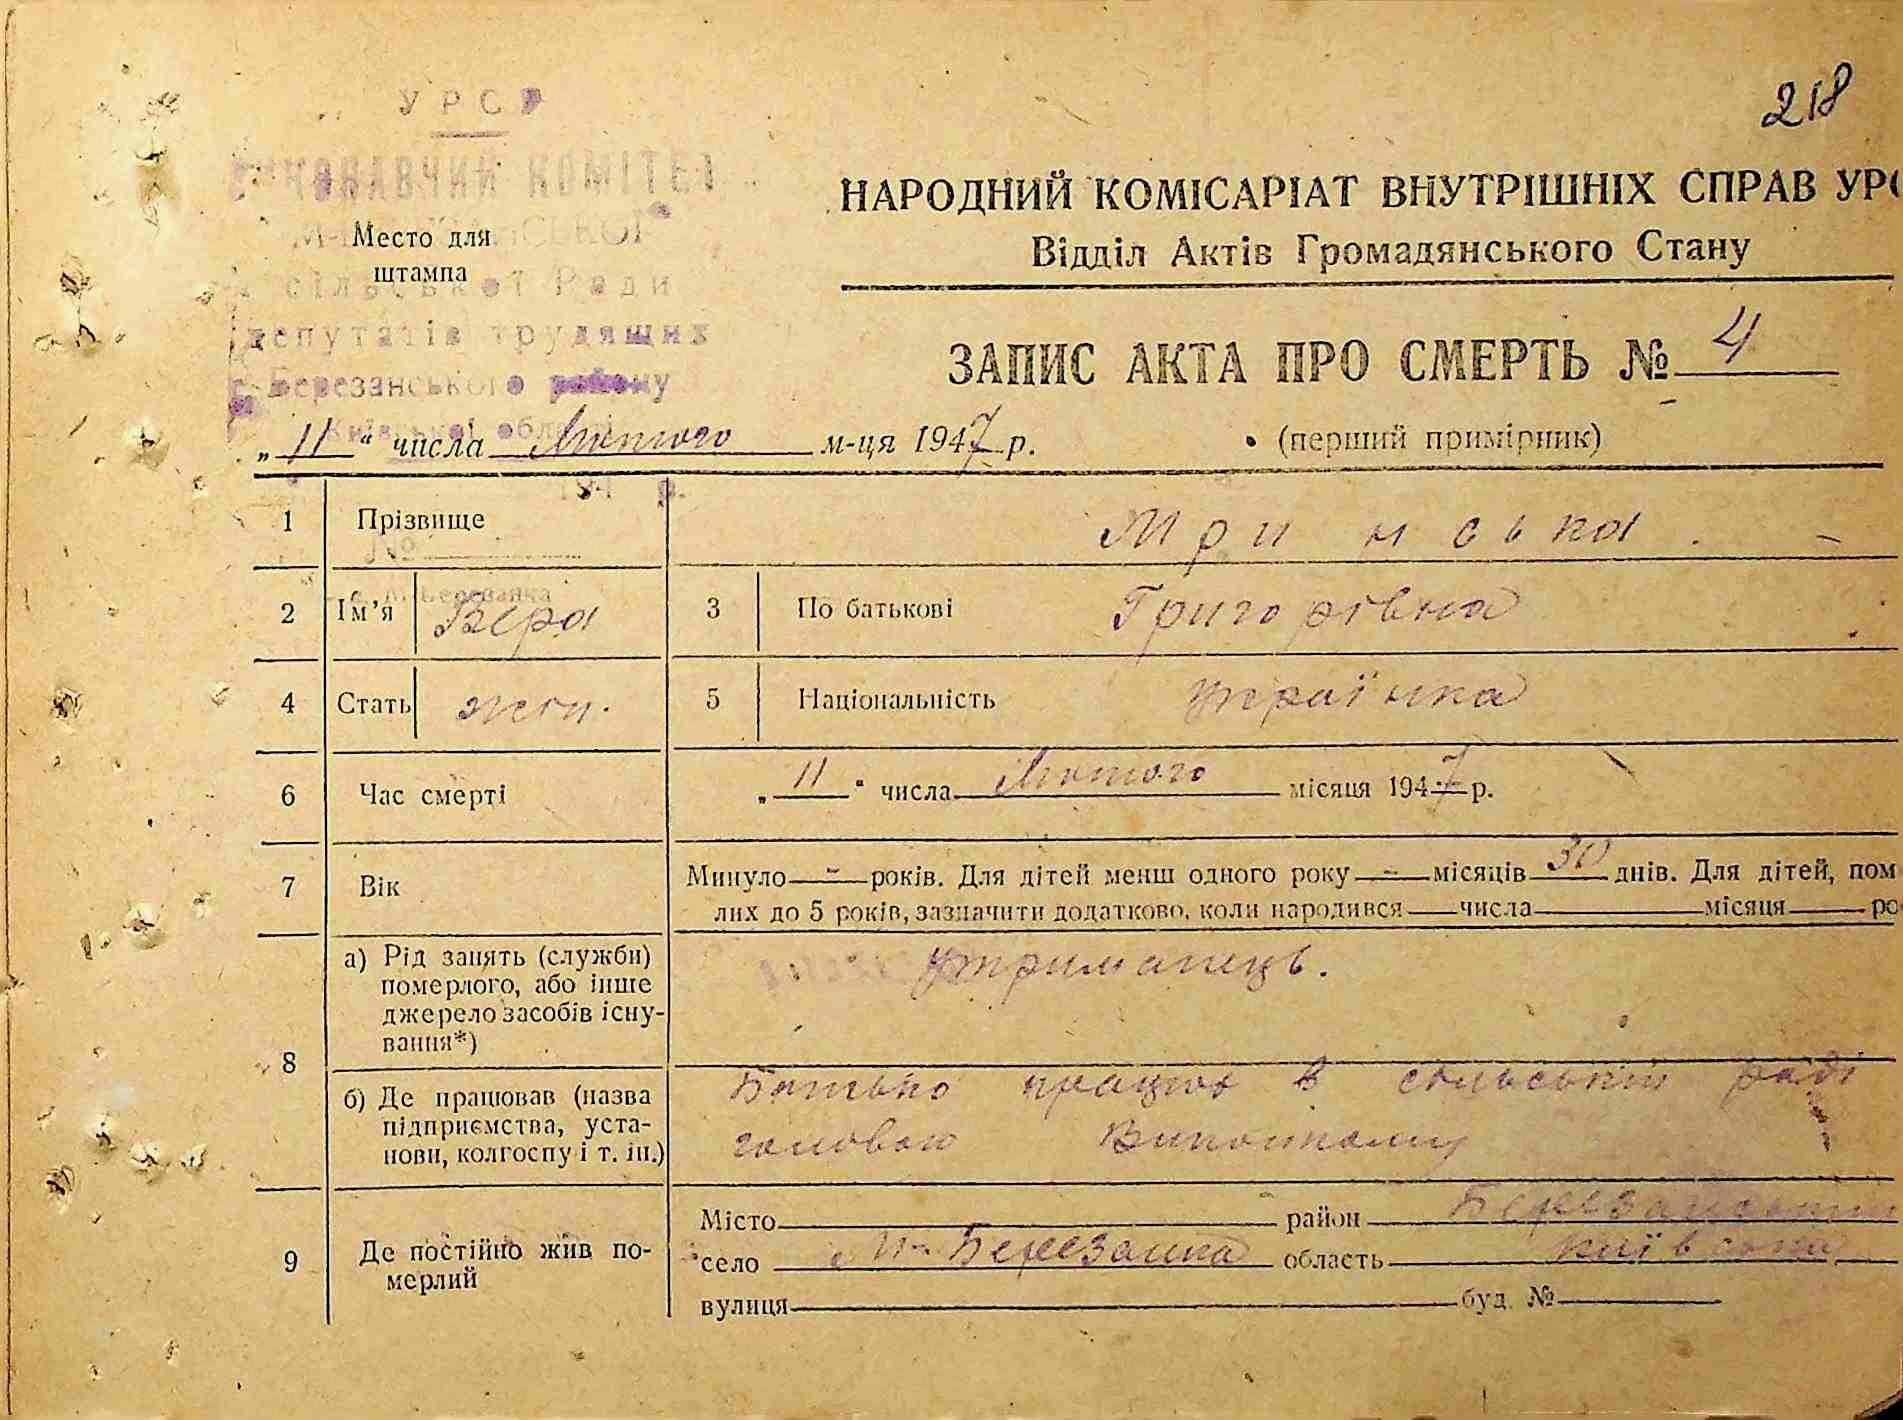 218
УРСР
ВИКОНАВЧИЙ КОМІТЕТ
Место для
штампа
сільської Ради
депутатів трудящих
Березанського району
Київської області
НАРОДНИЙ КОМІСАРІАТ ВНУТРІШНІХ СПРАВ УРС
Відділ Актів Громадянського Стану
ЗАПИС АКТА ПРО СМЕРТЬ № 4
„ 11 “ числа Лютого м-ця 1947 р.
(перший примірник)
194 р.
1 Прізвище Тринська.
№
2 Ім’я Вера 3 По батькові Григорівна
4 Стать жен. 5 Національність українка
6 Час смерті „ 11 “ числа Лютого місяця 1947 р.
7 Вік Минуло - років. Для дітей менш одного року - місяців 30 днів. Для дітей, пом
лих до 5 років, зазначити додатково, коли народився числа місяця ро
8 а) Рід занять (служби) утриманець.
померлого, або інше
джерело засобів існу-
вання*)
б) Де працював (назва Батько працює в сільській раді
підприємства, уста- головою
нови, колгоспу і т. ін.)
9 Де постійно жив по-
мерлий
Місто район Березанський
село М-Березанка область Київська
вулиця буд. №